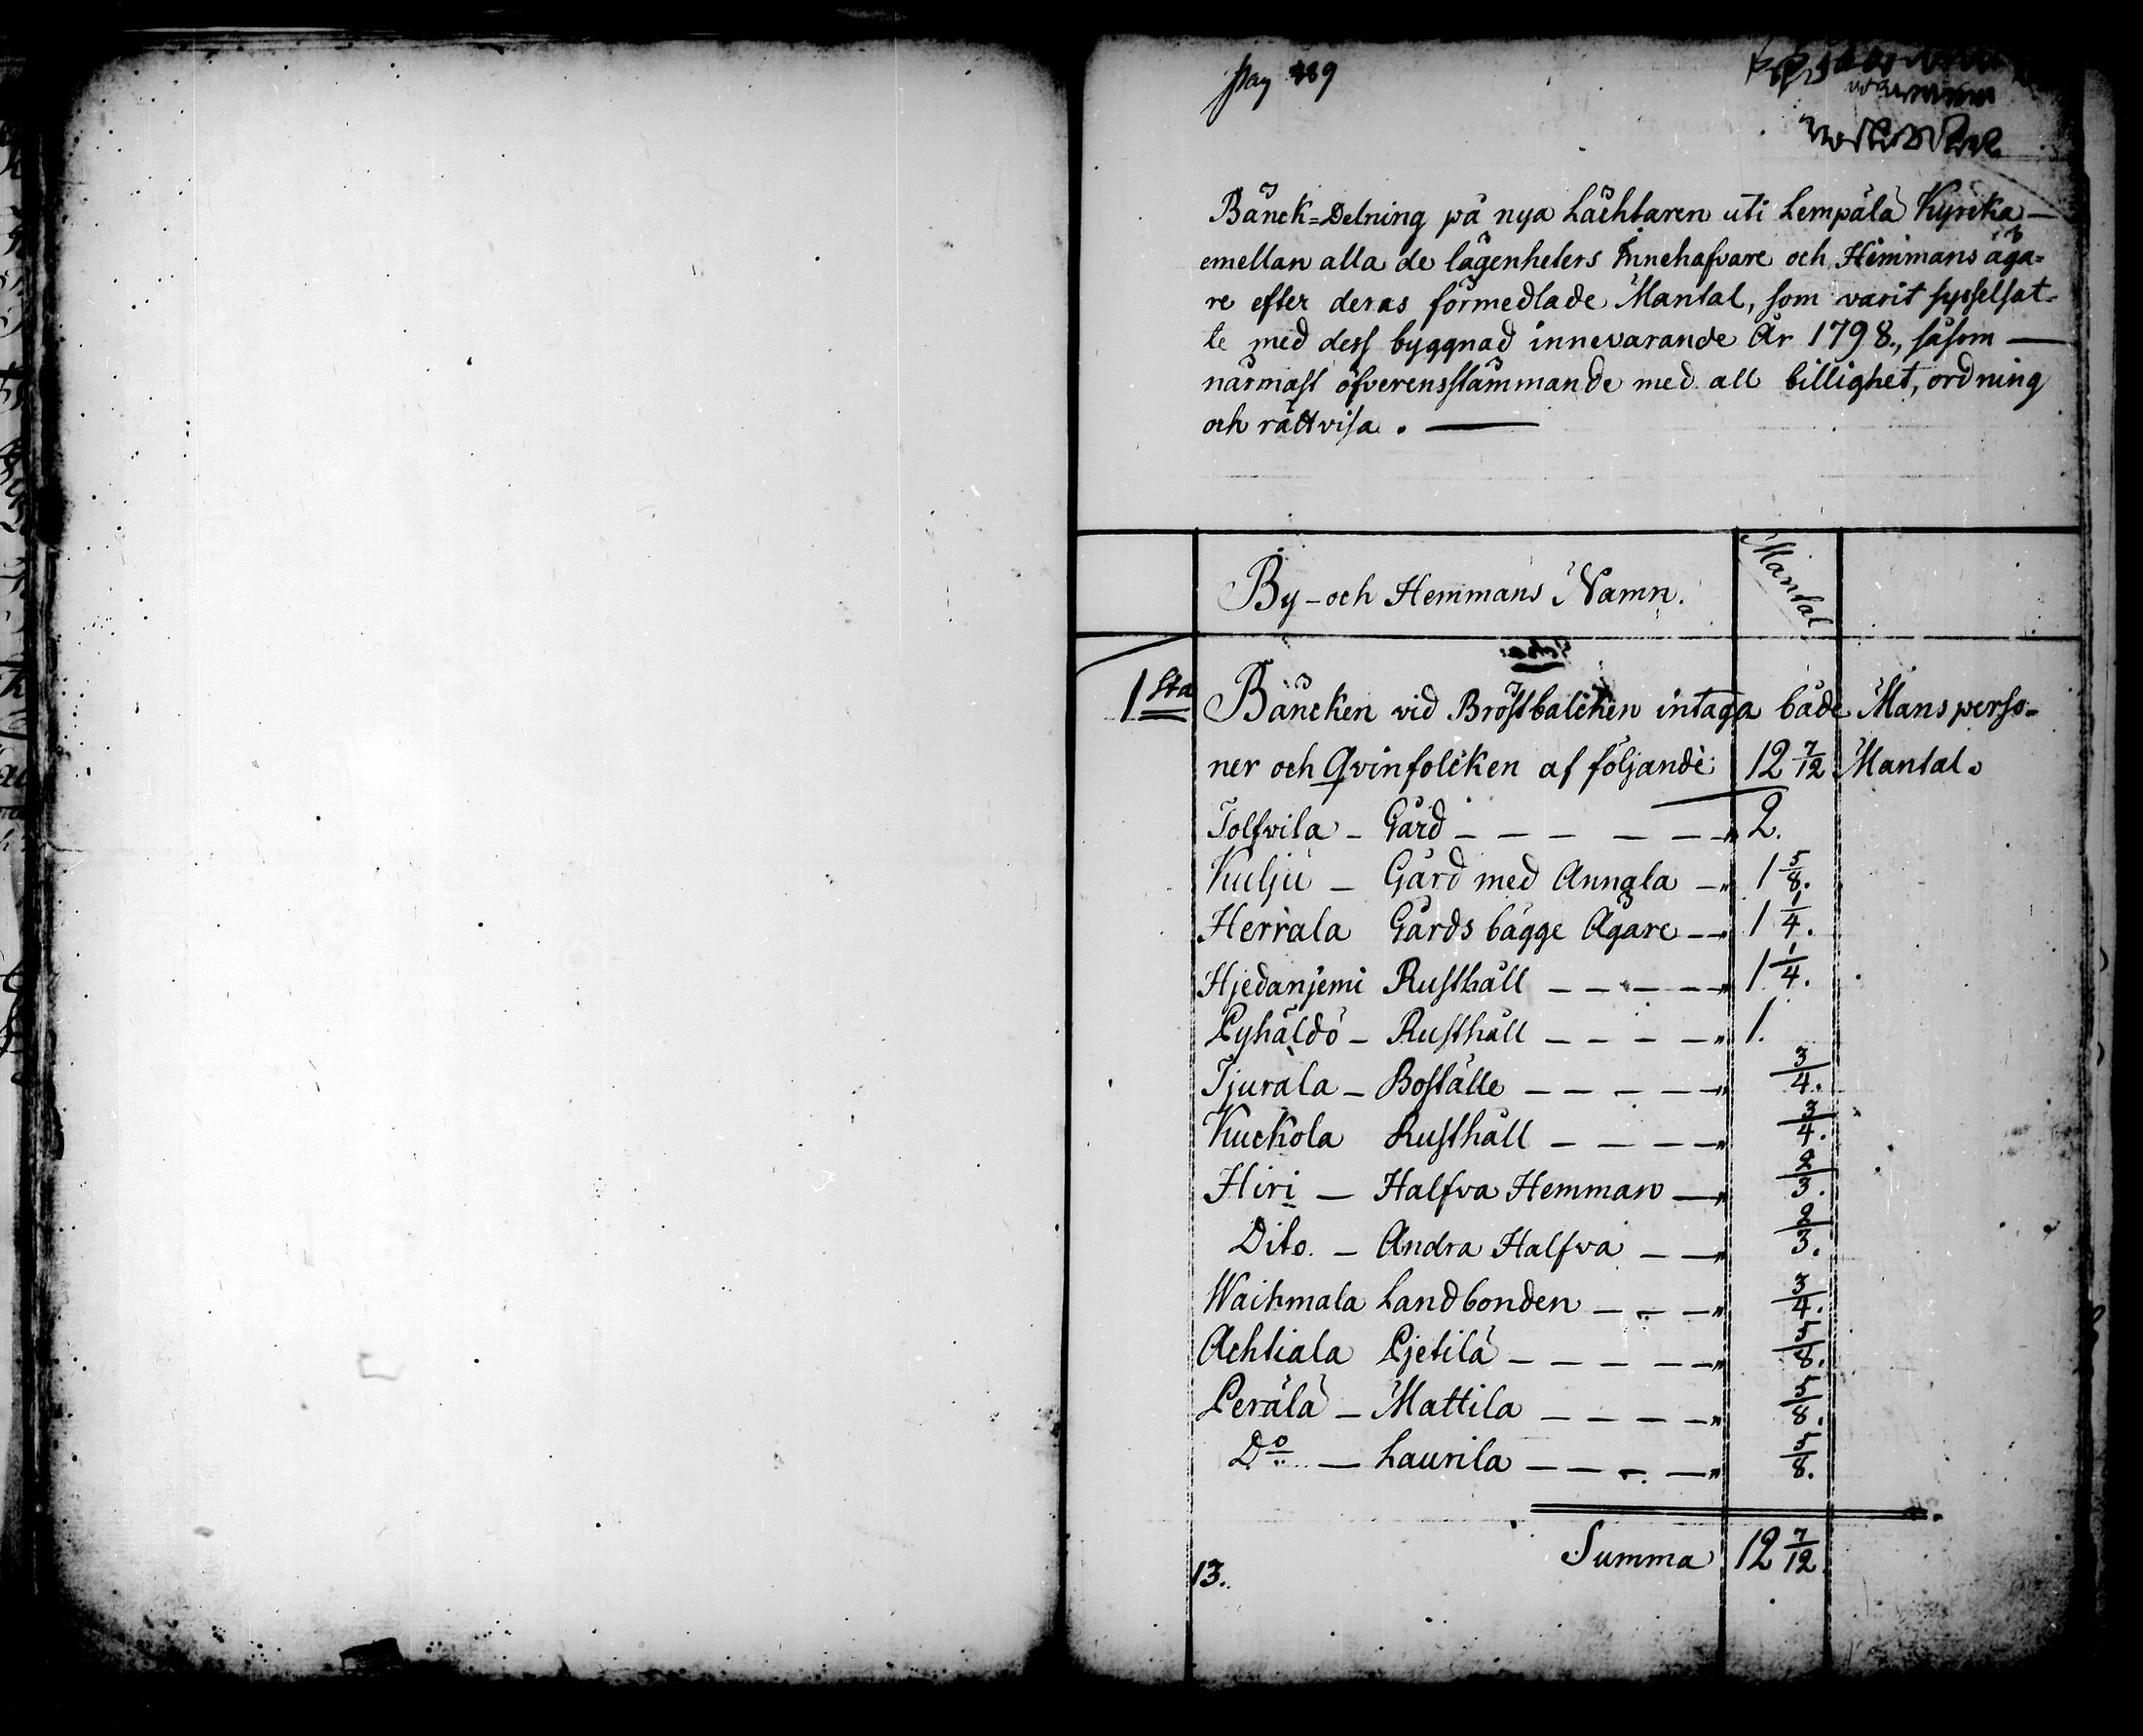 Pag 489
Bänck=Delning på nya Lächtaren uti Lempälä Kyrcka—
emellan alla de lägenheters Innehafvare och Hemmans äga=
re efter deras förmedlade Mantal, som varit sysselsat=
te med dess byggnad innevarande År 1798., såsom —
närmast öfverensstämmande med all billighet, ordning
och rättvisa. —
By-och Hemmans Namn. Mantal
1sta Bäncken vid Bröstbalcken intaga både Mansperso=
ner och Qvinfolcken af följande 12 7/12 Mantal.
Tolfvila - Gård - - - - - " 2.
Kulju - Gård med Anngla - " 1 5/8.
Herrala Gårds bägge Ägare - " 1 1/4.
Hjedanjemi Rusthåll - - - - " 1 1/4.
Pyhäldö - Rusthåll - - - - " 1.
Tjurala - Boställe - - - - " 3/4.
Kuckola Rusthåll - - - - " 3/4.
Hiri - Halfva Hemman - " 2/3.
Dito. - Andra Halfva - - " 2/3.
Waihmala Landbonden - - - " 3/4.
Achtiala Pjetilä - - - - - " 5/8.
Perälä - Mattila - - - - " 5/8.
Do - Laurila - - - - " 5/8.
Summa 12 7/12.
13.